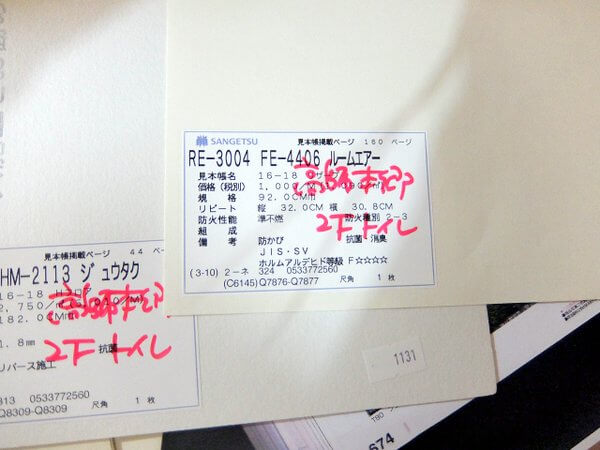 SANGETSU 見本帳掲載ページ 160 ページ
RE-3004 FE-4406 ルームエアー
見本帳名 16-18 リザーブ
価格(税別) 1,000/M
規格 92.0CM巾
リピート 縦 32.0CM 横 30.8CM
防火性能 準不燃 防火種別 2-3
組成
備考 防かび 抗菌 消臭
JIS・SV
ホルムアルデヒド等級 F☆☆☆☆
(3-10) 2-ネ 324 0533772560
(C6145) Q7876-Q7877 尺角 1 枚
2F トイレ
見本帳掲載ページ 44 ペー
HM-2113 ジュウタク
16-18 Hフロア
2,750/
182.0CM
1.8mm 抗菌
リバース施工
313 0533772560
Q8309-Q8309 尺角 1 枚
2F トイレ
1131
T80
674